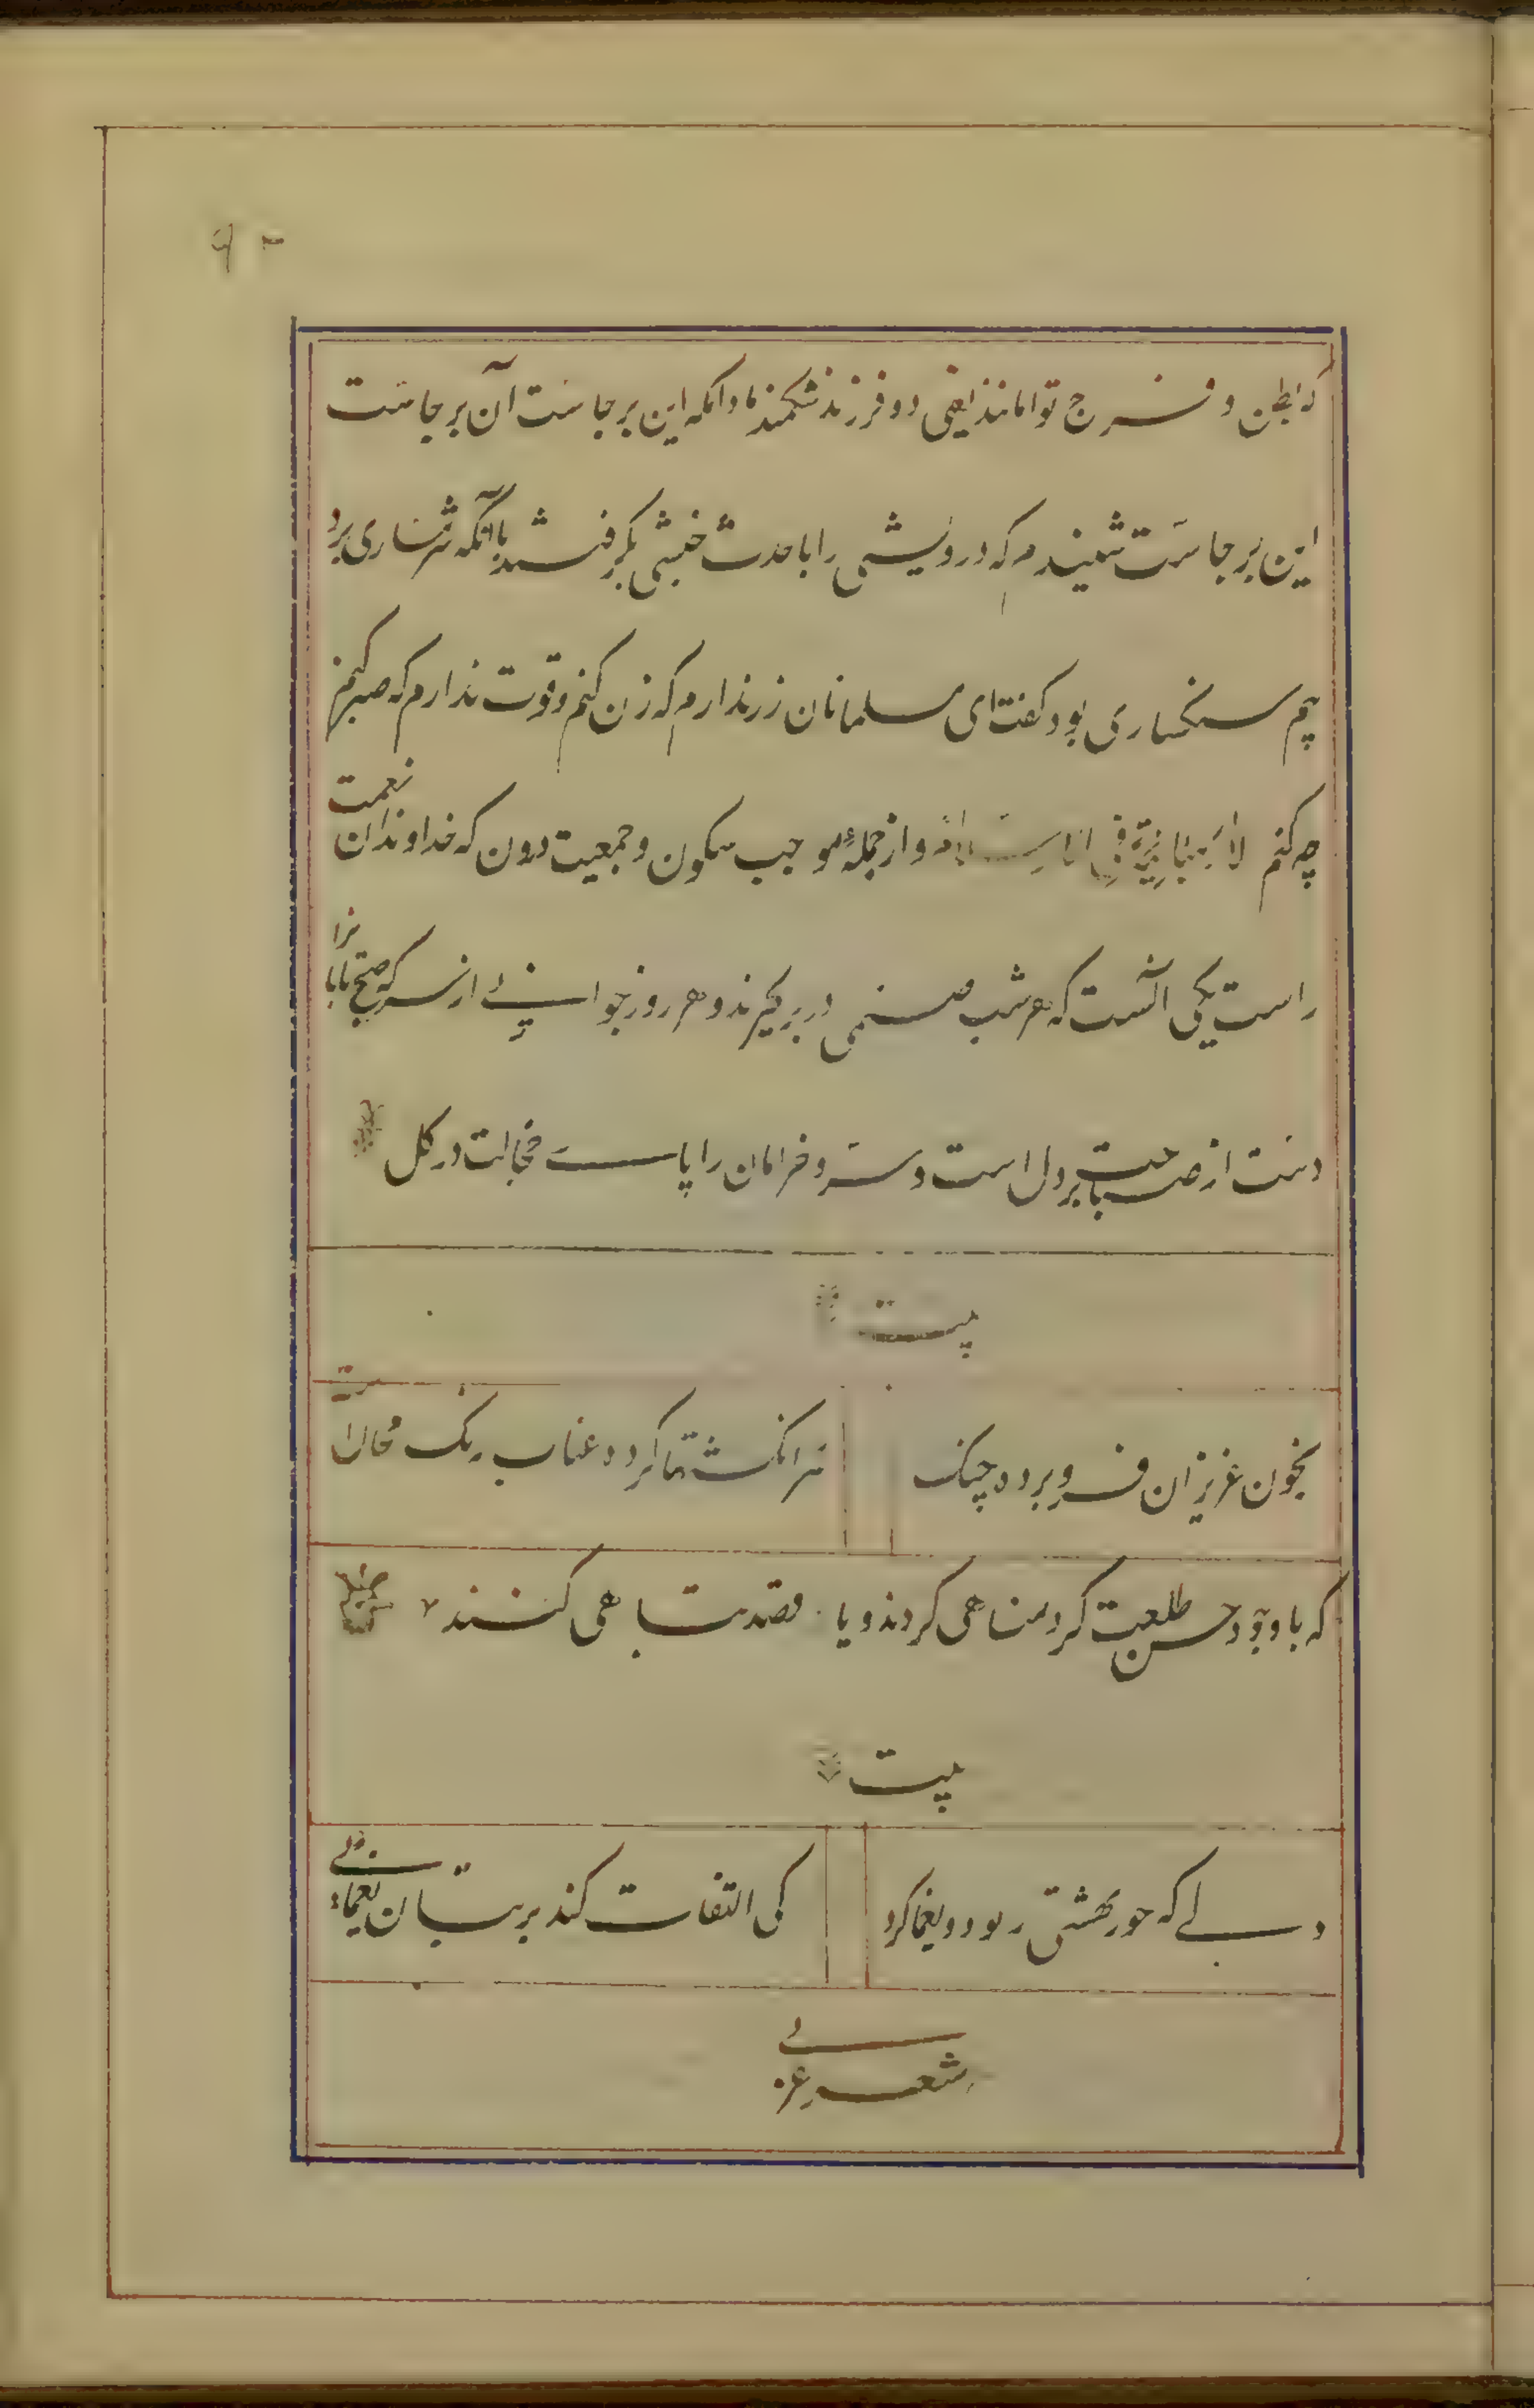 ۹۳
که بطن و فرج توامانند یعنی دو فرزند شکمند مادامکه این برجاست آن برجاست
این برجاست شنیدم که درویشی را با حدث خبیثی بگرفتند باآنکه شرمساری برد
بیم سنگساری بود گفت ای مسلمانان زر ندارم که زن کنم و قوت ندارم که صبر کنم
چه کنم لا رهبانیة فی الاسلام و از جملهٔ موجب سکون و جمعیت درون که خداوندان نعمت
راست یکی آنست که هر شب صنمی در بر گیرند و هر روز جوانی از سر که صبح تابانرا
دست از صباحت بر دل است و سرو خرامان را پای خجالت در گل
بیت
بخون عزیزان فرو برده چنگ
سرانگشتها کرده عناب رنگ محالست
که با وجود حسن طلعت گرد مناهی گردند و یا قصد تباهی کنند
بیت
دلی که حور بهشتی ربود و یغما کرد
کی التفات کند بر بتان یغمائی
شعر عربی